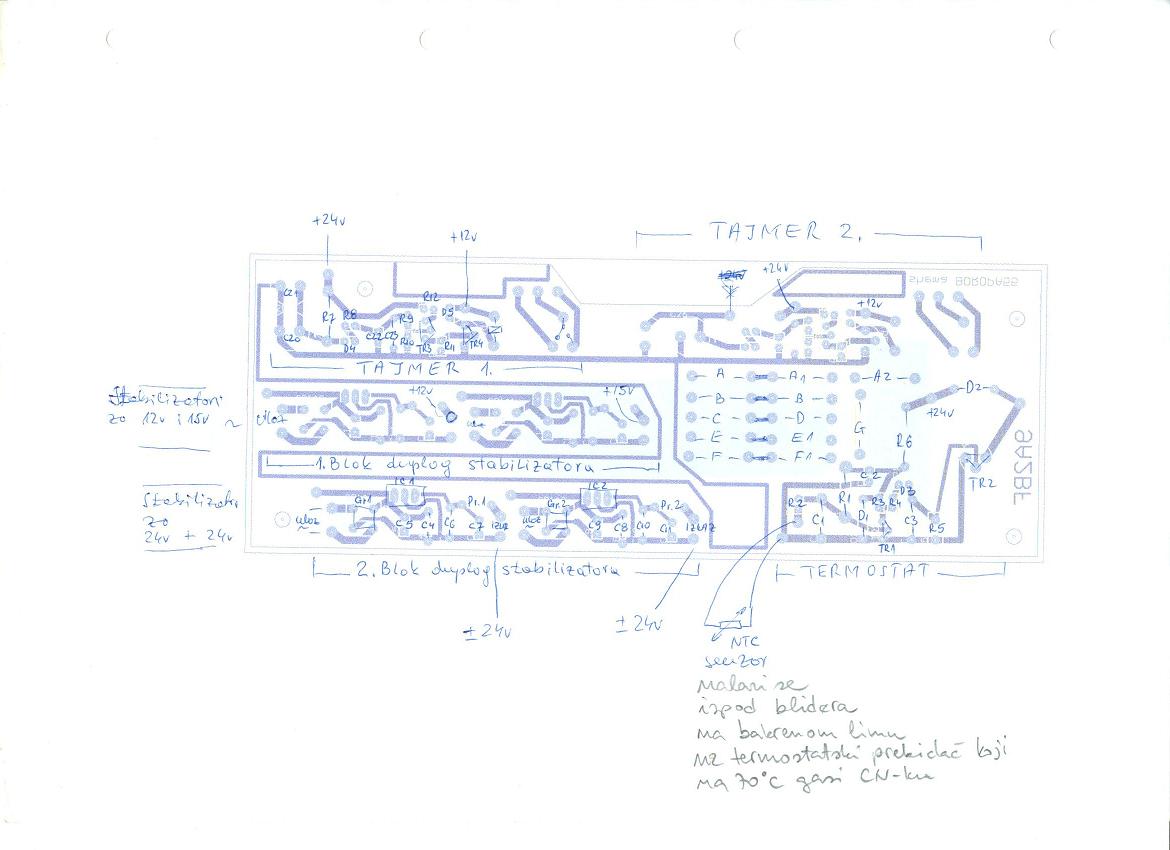 +24v
+12v
TAJMER 2.
+24v
+24v
+12v
shema BOROPASS
C21
C20
R7
R8
D4
C22
C23
R9
R10
R12
TR3
R11
D5
TR4
TAJMER 1.
A A1 A2
B B
C D
E E1
F F1
G
D2
+24v
R6
TR2
Stabilizatori
za 12v i 15v ~
ulaz
+12v
+15v
1. Blok duplog stabilizatora
Stabilizator
za
24v + 24v
ulaz
Gr.1
IC1
C5
C4
C6
C7
Pr.1
IZLAZ
ulaz
Gr.2
IC2
C9
C8
C10
C11
Pr.2
IZLAZ
2. Blok duplog stabilizatora
C2
R2
C1
R1
D1
R3
R4
D3
TR1
C3
R5
TERMOSTAT
± 24v
± 24v
NTC
senzor
nalazi se
ispod blidera
na bakrenom limu
uz termostatski prekidač koji
na 70°C gasi CN-ku